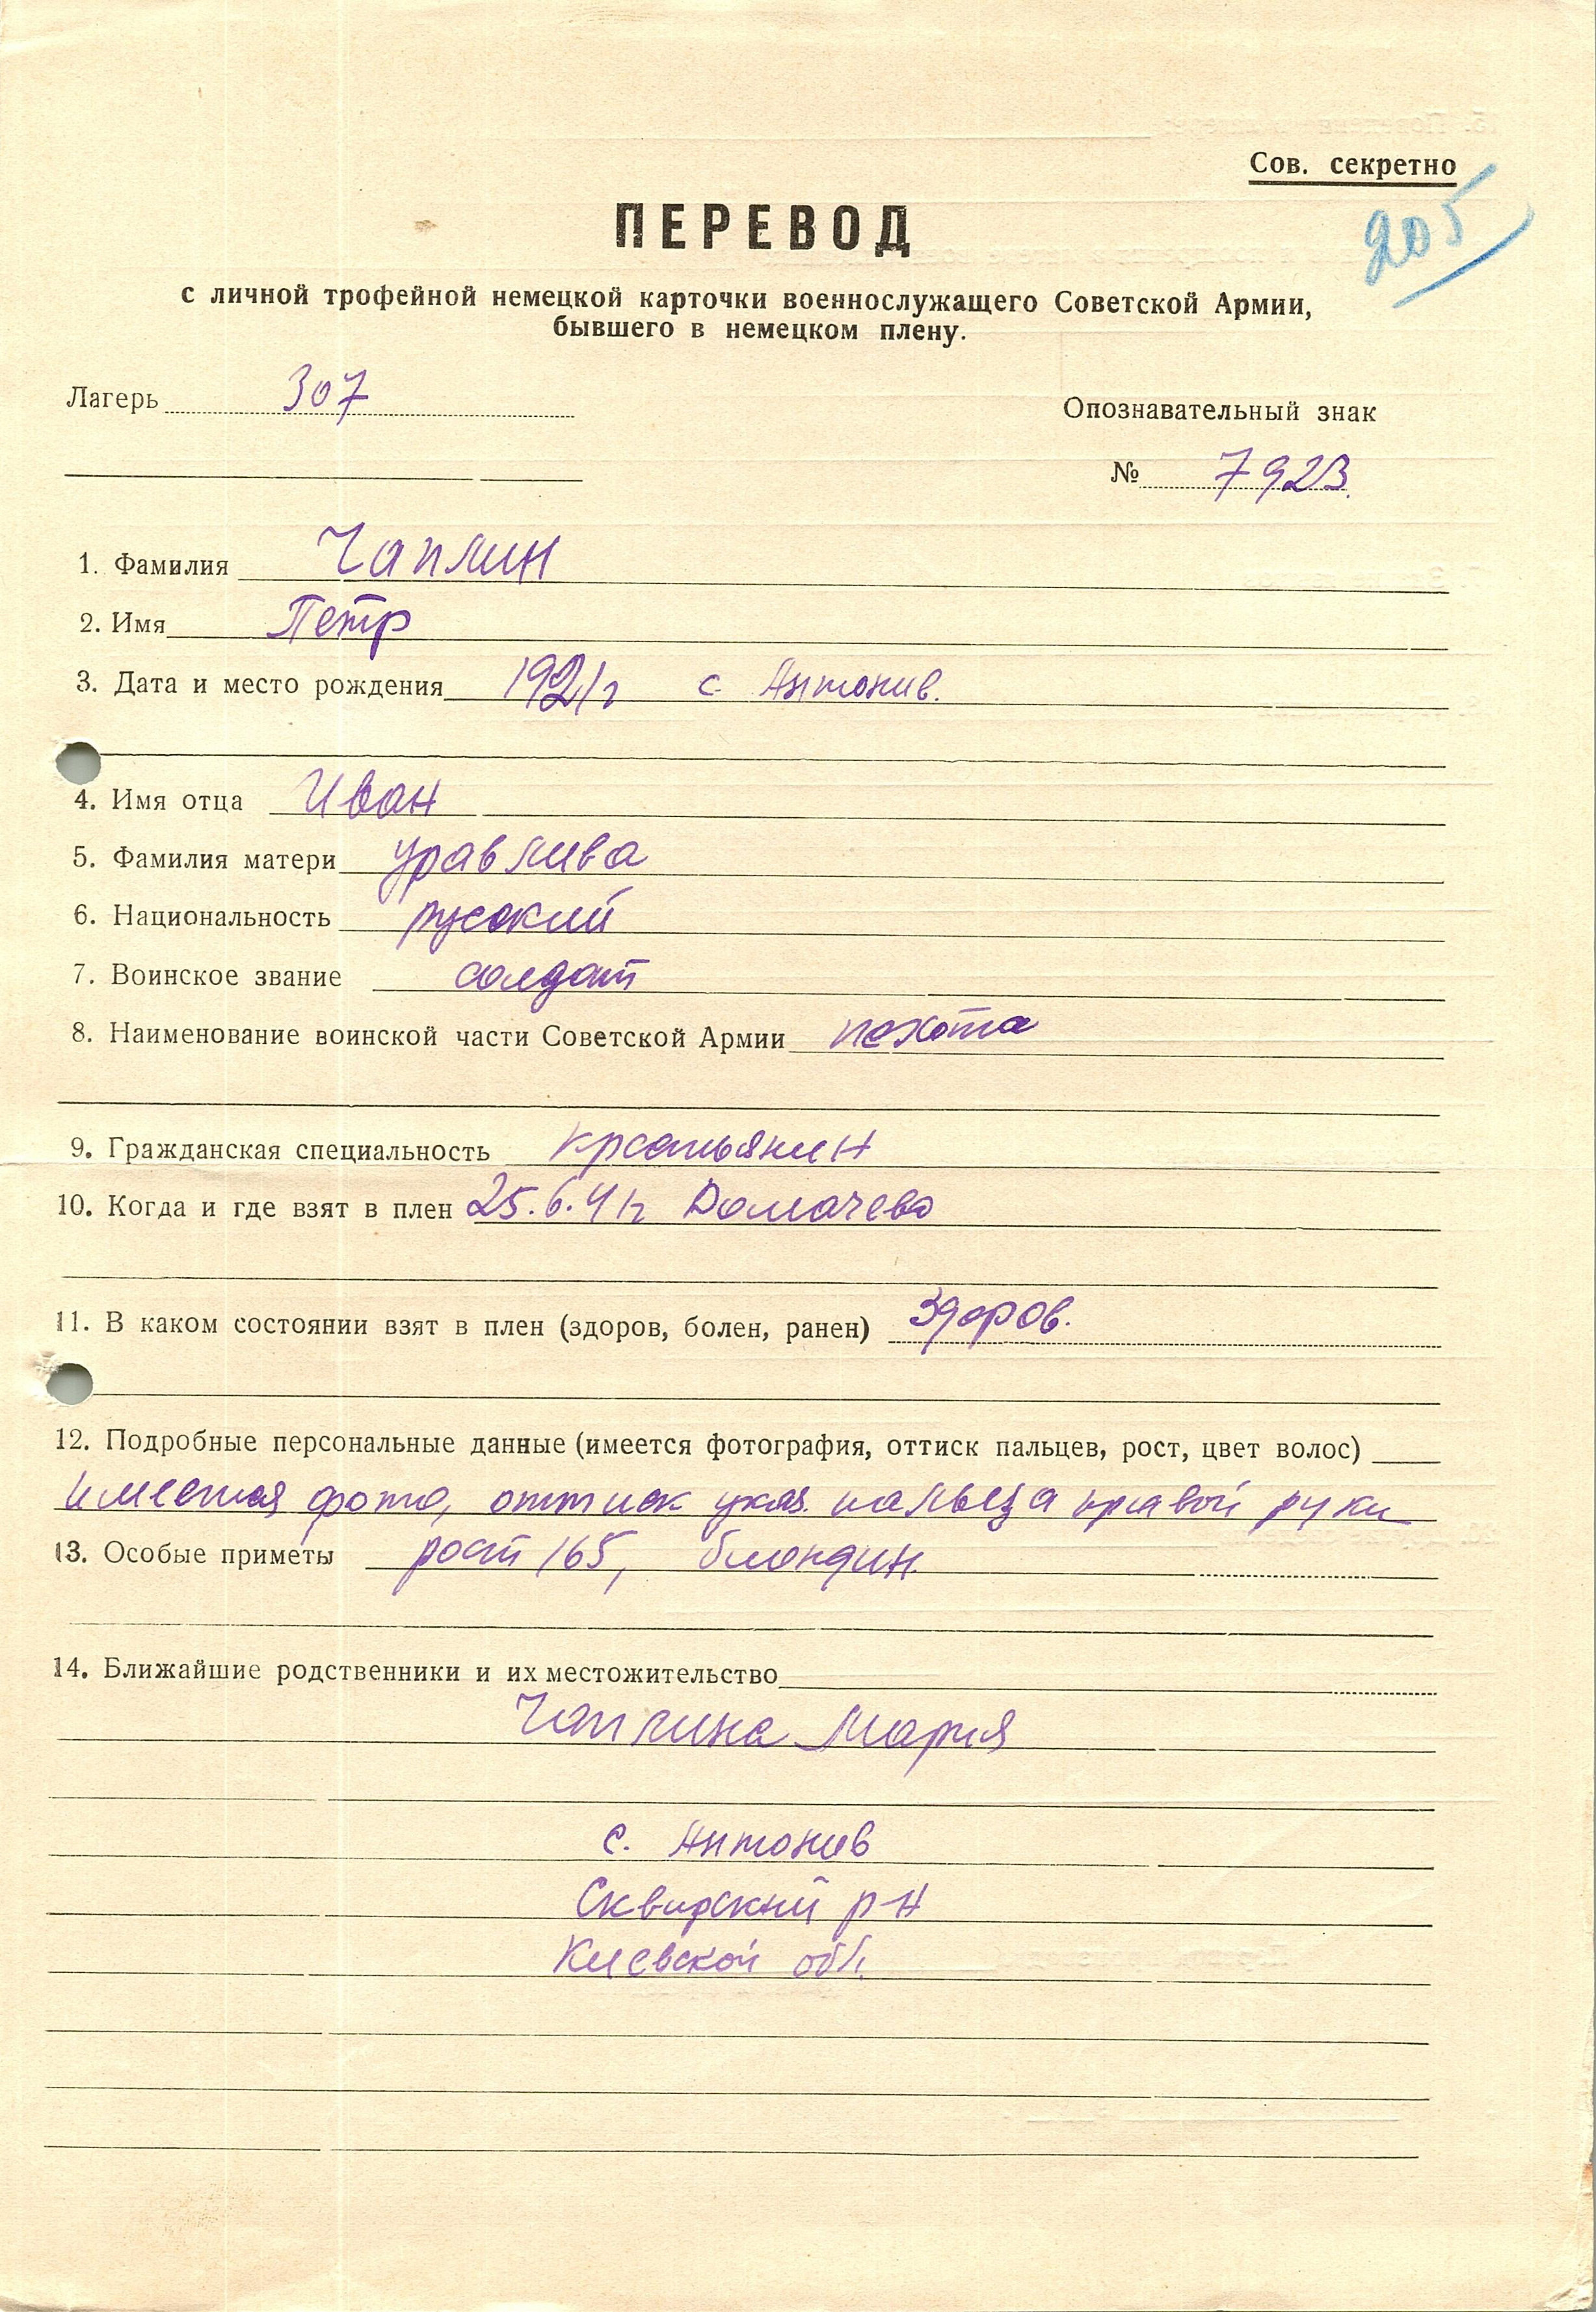 Сов. секретно
205
ПЕРЕВОД
с личной трофейной немецкой карточки военнослужащего Советской Армии,
бывшего в немецком плену.
Лагерь 307
Опознавательный знак
№ 7923.
1. Фамилия Чаплин
2. Имя Петр
3. Дата и место рождения 1921 г с. Антонив.
4. Имя отца Иван
5. Фамилия матери Уравлива
6. Национальность русский
7. Воинское звание солдат
8. Наименование воинской части Советской Армии пехота
9. Гражданская специальность крестьянин
10. Когда и где взят в плен 25.6.41г Домачево
11. В каком состоянии взят в плен (здоров, болен, ранен) здоров.
12. Подробные персональные данные (имеется фотография, оттиск пальцев, рост, цвет волос)
имеется фото, оттиск указ. пальца правой руки
13. Особые приметы рост 165, блондин.
14. Ближайшие родственники и их местожительство
Чаплина Мария
с. Антонив
Сквирский р-н
Киевской обл.